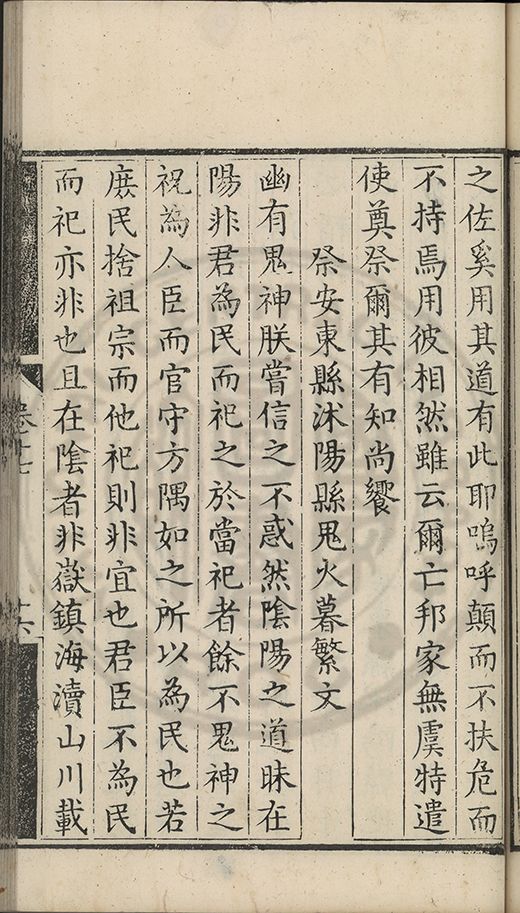 之佐奚用其道有此耶嗚呼顛而不扶危而
不持焉用彼相然雖云爾亡邦家無虞特遣
使奠祭爾其有知尚饗
祭安東縣沭陽縣鬼火暮繁文
幽有鬼神朕嘗信之不惑然陰陽之道昧在
陽非君為民而祀之於當祀者餘不鬼神之
祝為人臣而官守方隅如之所以為民也若
庶民捨祖宗而他祀則非宜也君臣不為民
而祀亦非也且在陰者非嶽鎮海瀆山川載
卷十七
十六